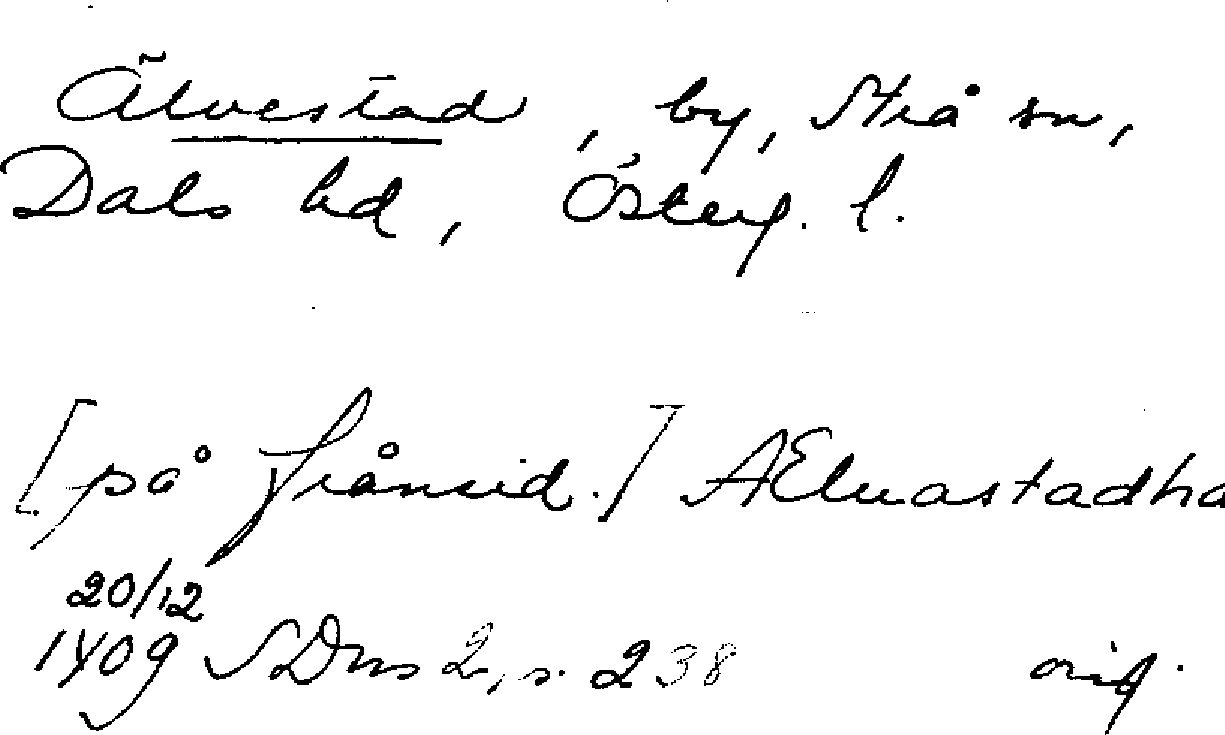 Älvestad, by, Strå sn,
Dals hd, Österg. l.
[på frånsid.] AEluastadha
20/12
1409 SDns 2, s. 238 orig.